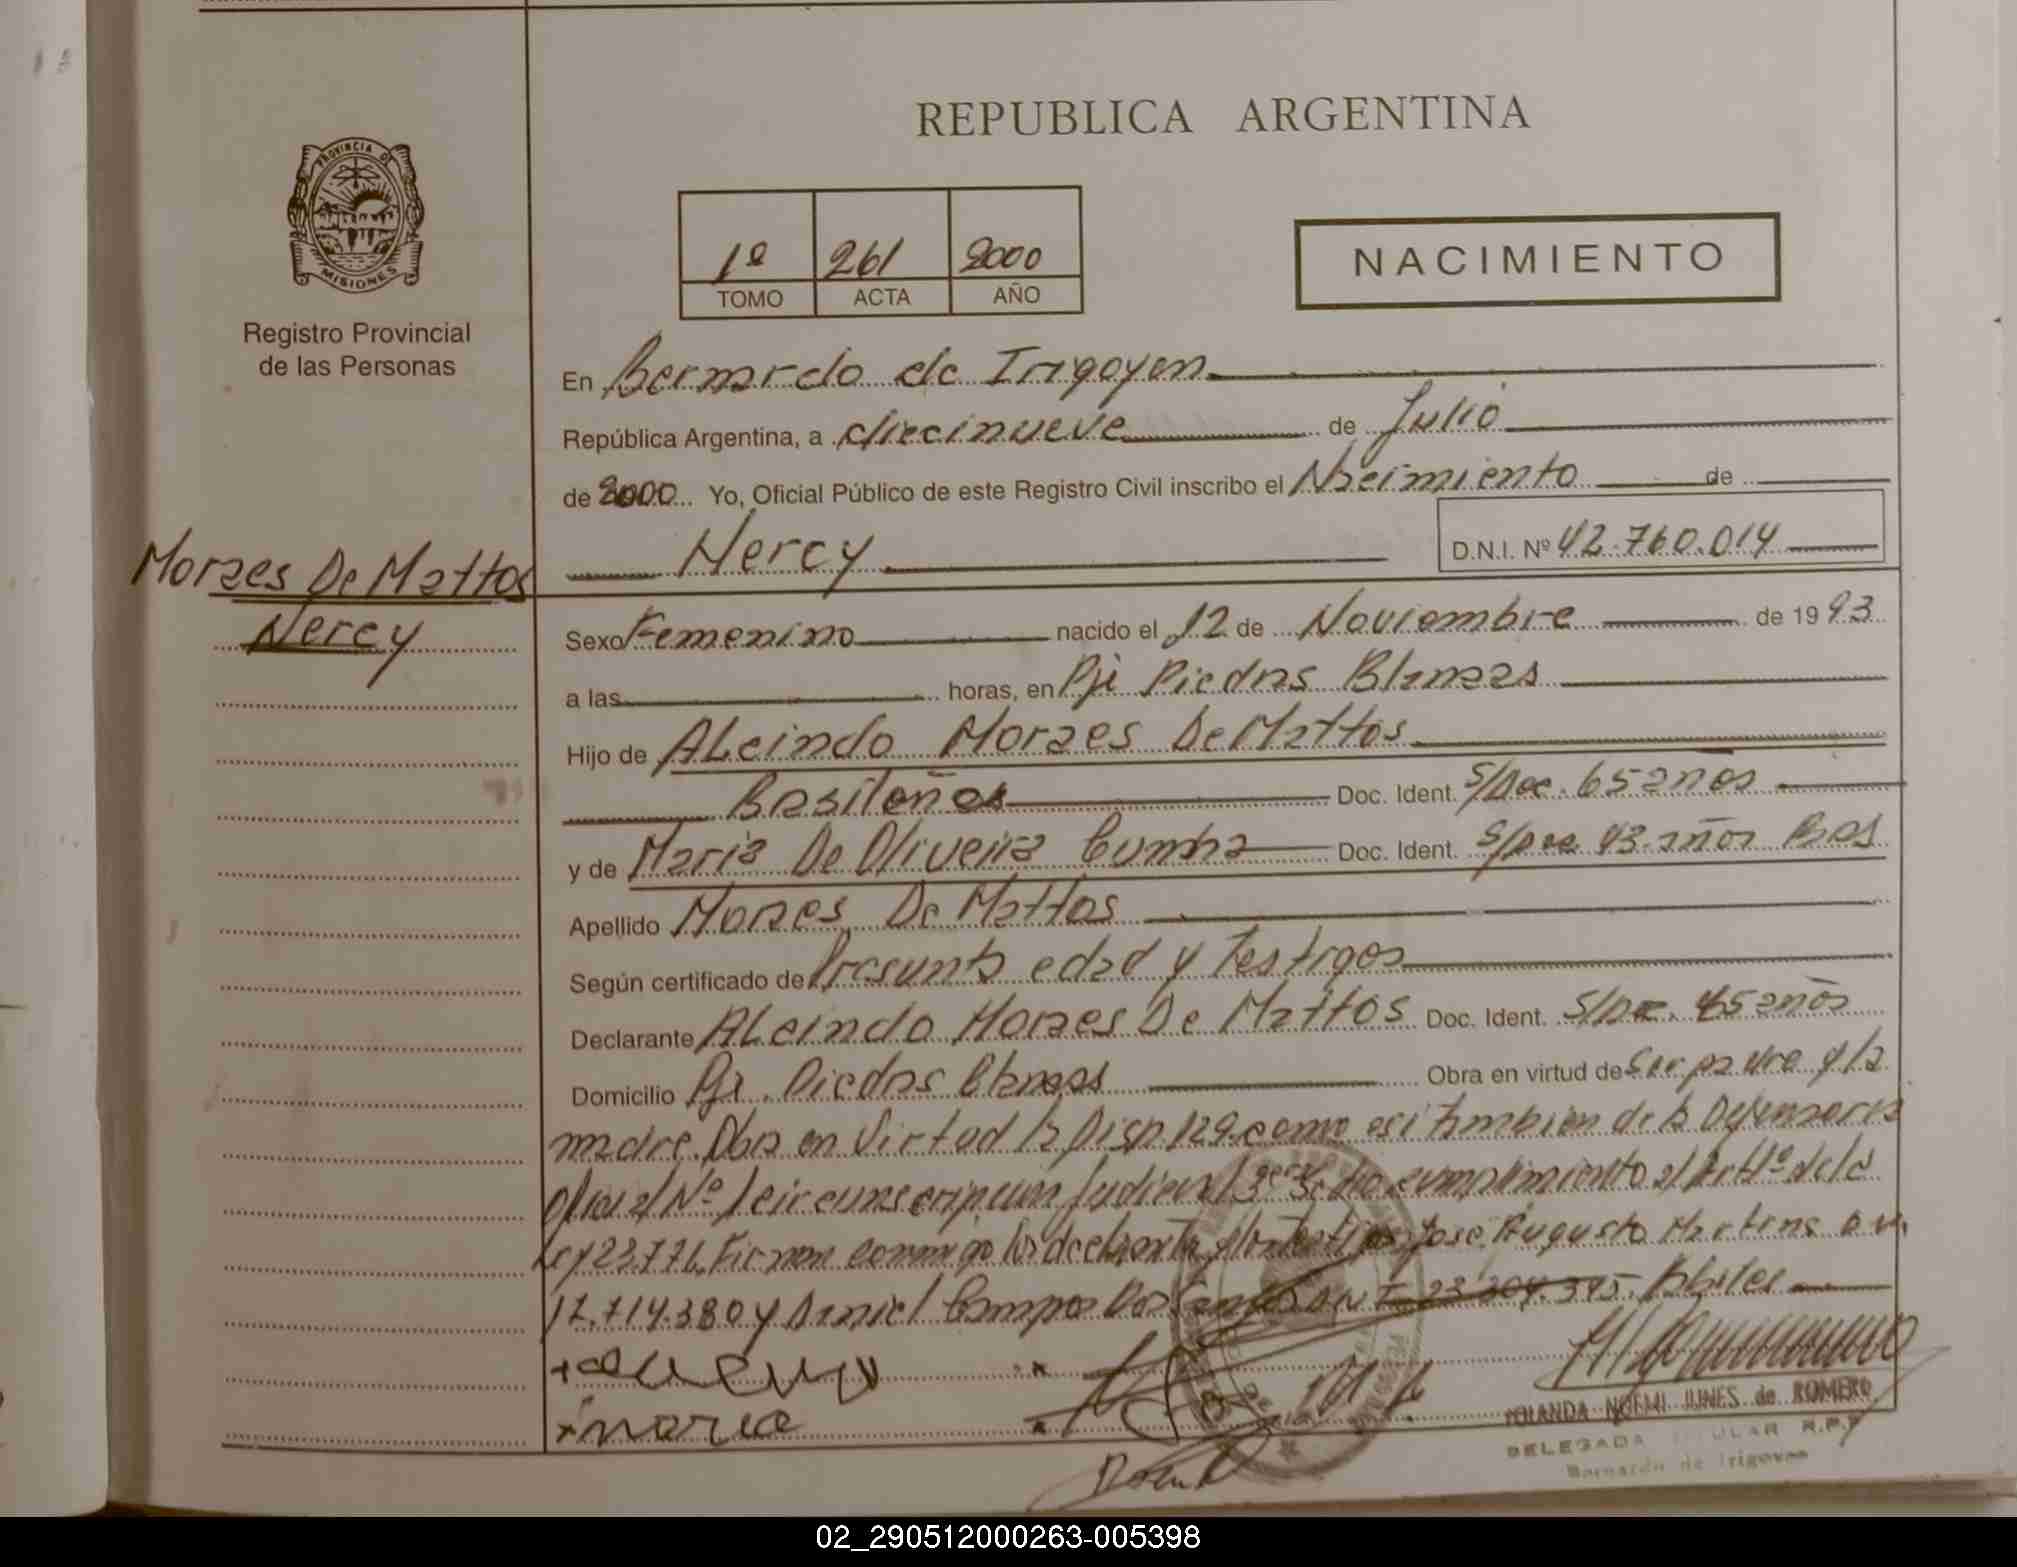 REPUBLICA ARGENTINA
PROVINCIA DE
MISIONES
Registro Provincial
de las Personas
1º 261 2000
TOMO ACTA AÑO
NACIMIENTO
En Bernardo de Irigoyen
República Argentina, a diecinueve de Julio
de 2000 Yo, Oficial Público de este Registro Civil inscribo el Nacimiento de
Nercy D.N.I. Nº 42.760.014
Moraes De Mattos
Nercy
Sexo Femenino nacido el 12 de Noviembre de 1993
a las horas, en Pje Piedras Blancas
Hijo de Alcindo Moraes De Mattos
Brasileños Doc. Ident. S/Doc. 65 años
y de Maria De Oliveira Cunha Doc. Ident. S/Doc 43 años Bras
Apellido Moraes De Mattos
Según certificado de Presunta edad y Testigos
Declarante Alcindo Moraes De Mattos Doc. Ident. S/Doc. 45 años
Domicilio Pje. Piedras Blancas Obra en virtud de Ser padre y la
madre. Obra en Virtud la Disp 129. como asi tambien de la Defensoria
Oficial Nº 1 circunscripcion Judicial 3era cumplimiento al Art 1º de la
Ley 23.776. Firman conmigo los declarantes y los testigos José Augusto Martins
17.714.380 y Daniel Campos Dos Santos DNI 23.304.395. Habiles
maria
YOLANDA NOEMI JUNES de ROMERO
DELEGADA TITULAR R.P.P
Bernardo de Irigoyen
02_290512000263-005398